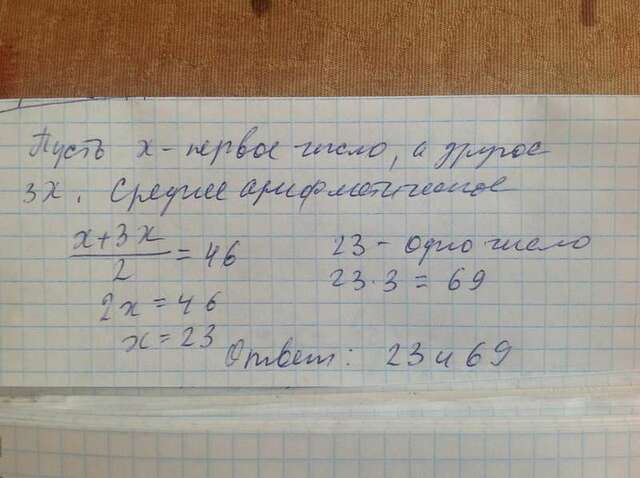 Пусть x - первое число, а другое
3x. Среднее арифметическое
x+3x / 2 = 46
2x = 46
x = 23
23 - одно число
23·3 = 69
Ответ: 23 и 69